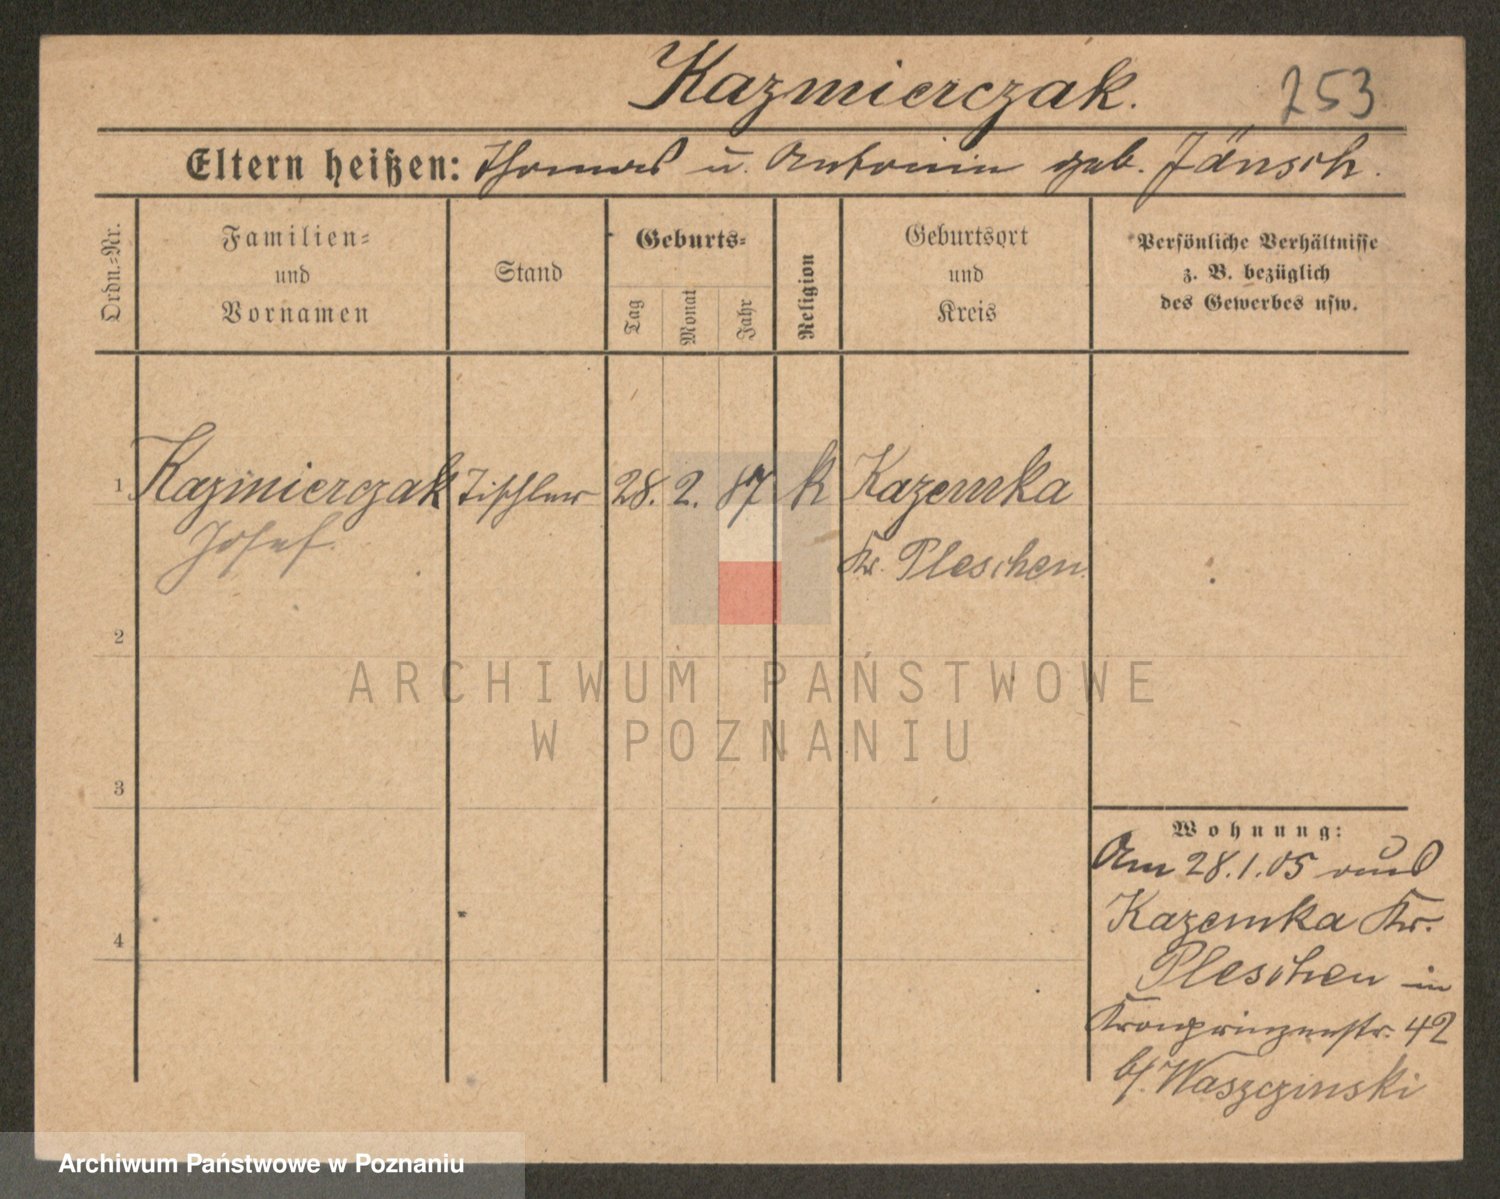 Kazmierczak.
253
Eltern heißen: Thomas u. Antonin geb. Jänsch.
Ordn.-Nr.
Familien-
und
Vornamen
Stand
Geburts-
Tag
Monat
Jahr
Religion
Geburtsort
und
Kreis
Persönliche Verhältnisse
z. B. bezüglich
des Gewerbes usw.
1 Kazmierczak Tischler 28. 2. 87 k Kazemka
Josef. Kr. Pleschen.
2
3
4
Wohnung:
Am 28.1.05 aus
Kazemka Kr.
Pleschen in
Kronprinzenstr. 42
b/. Waszczinski
ARCHIWUM PAŃSTWOWE
W POZNANIU
Archiwum Państwowe w Poznaniu